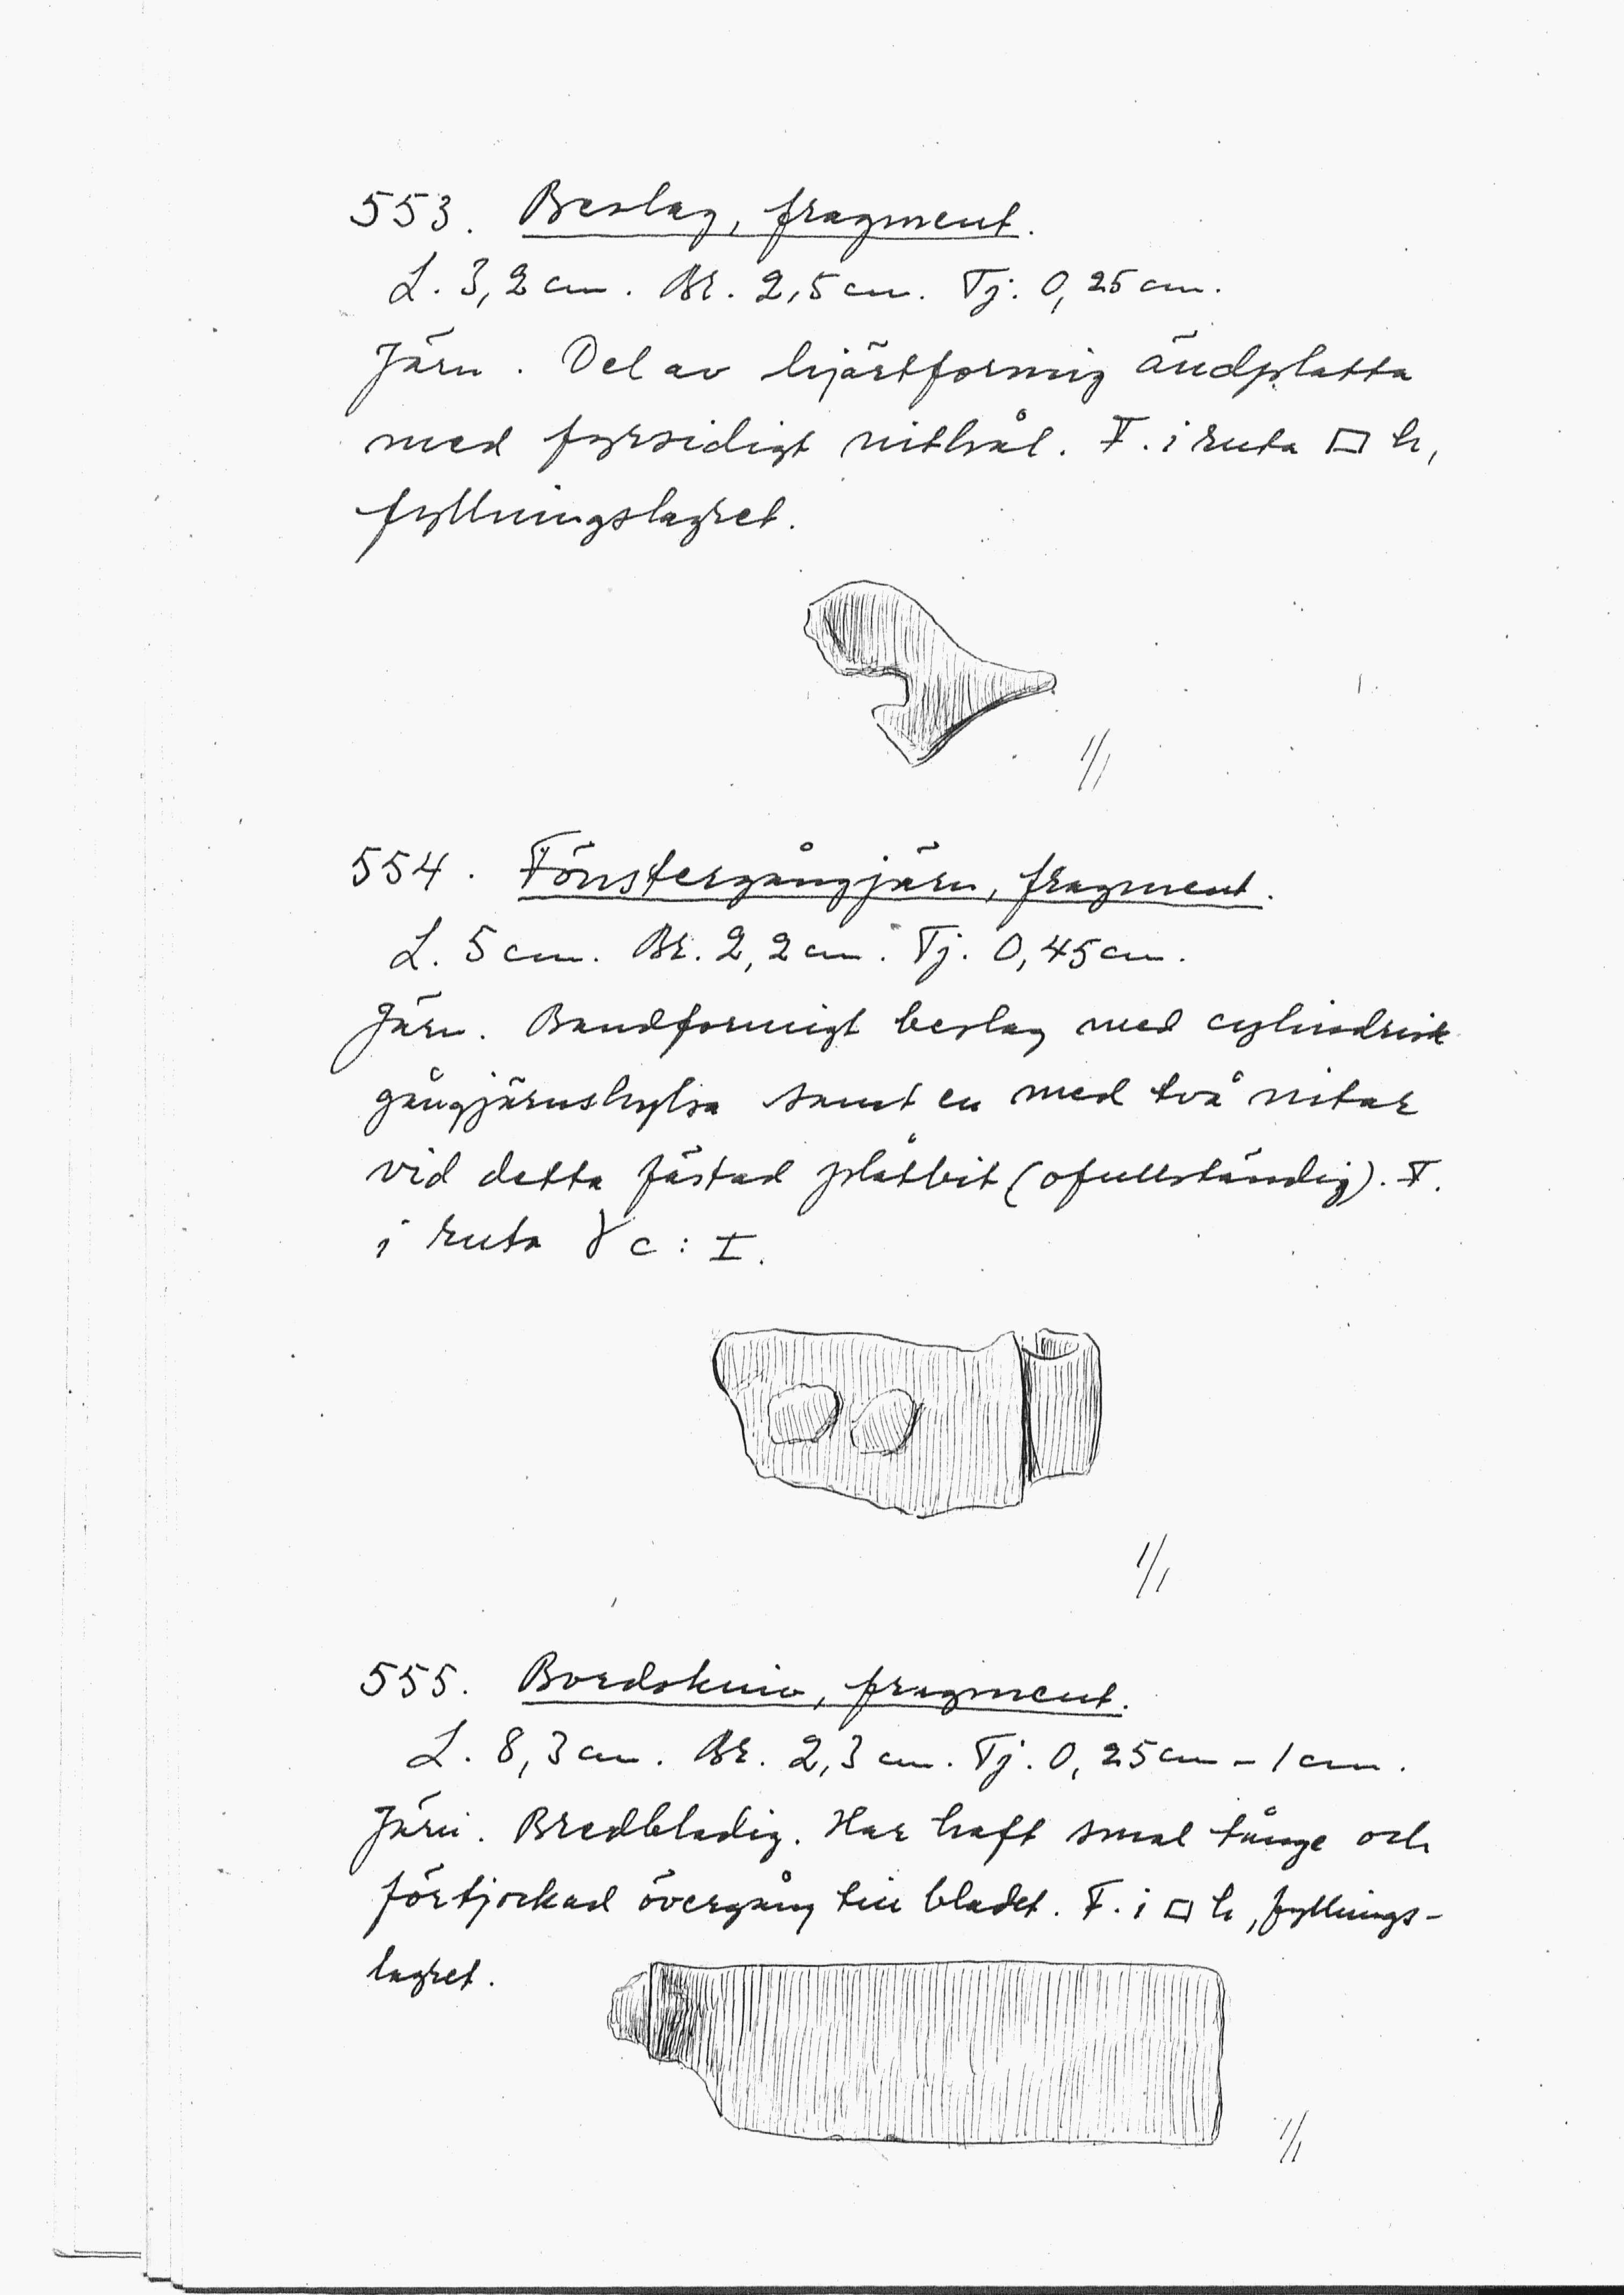 553. Beslag, fragment.
L. 3,2 cm. Br. 2,5 cm. Tj. 0,25 cm.
Järn. Del av hjärtformig ändplatta
med fyrsidigt nithål. F. i ruta □ h,
fyllningslagret.
1/1
554. Fönstergångjärn, fragment.
L. 5 cm. Br. 2,2 cm. Tj. 0,45 cm.
Järn. Bandformigt beslag med cylindrisk
gångjärnshylsa samt en med två nitar
vid detta fästad plåtbit (ofullständig). F.
i ruta γ c : I.
1/1
555. Bordskniv, fragment.
L. 8,3 cm. Br. 2,3 cm. Tj. 0,25 cm - 1 cm.
Järn. Bredbladig. Har haft smal tånge och
förtjockad övergång till bladet. F. i □ h, fyllnings-
lagret.
1/1